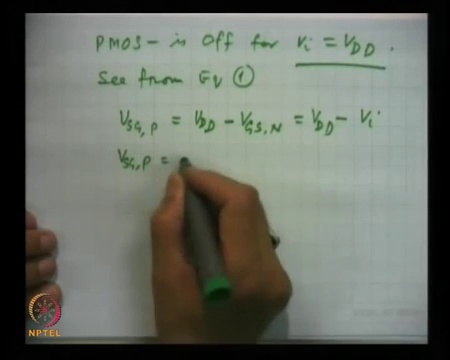 PMOS - is Off for Vi = VDD.
See from Eq ①
VSG,P = VDD - VGS,N = VDD - Vi
VSG,P =
NPTEL